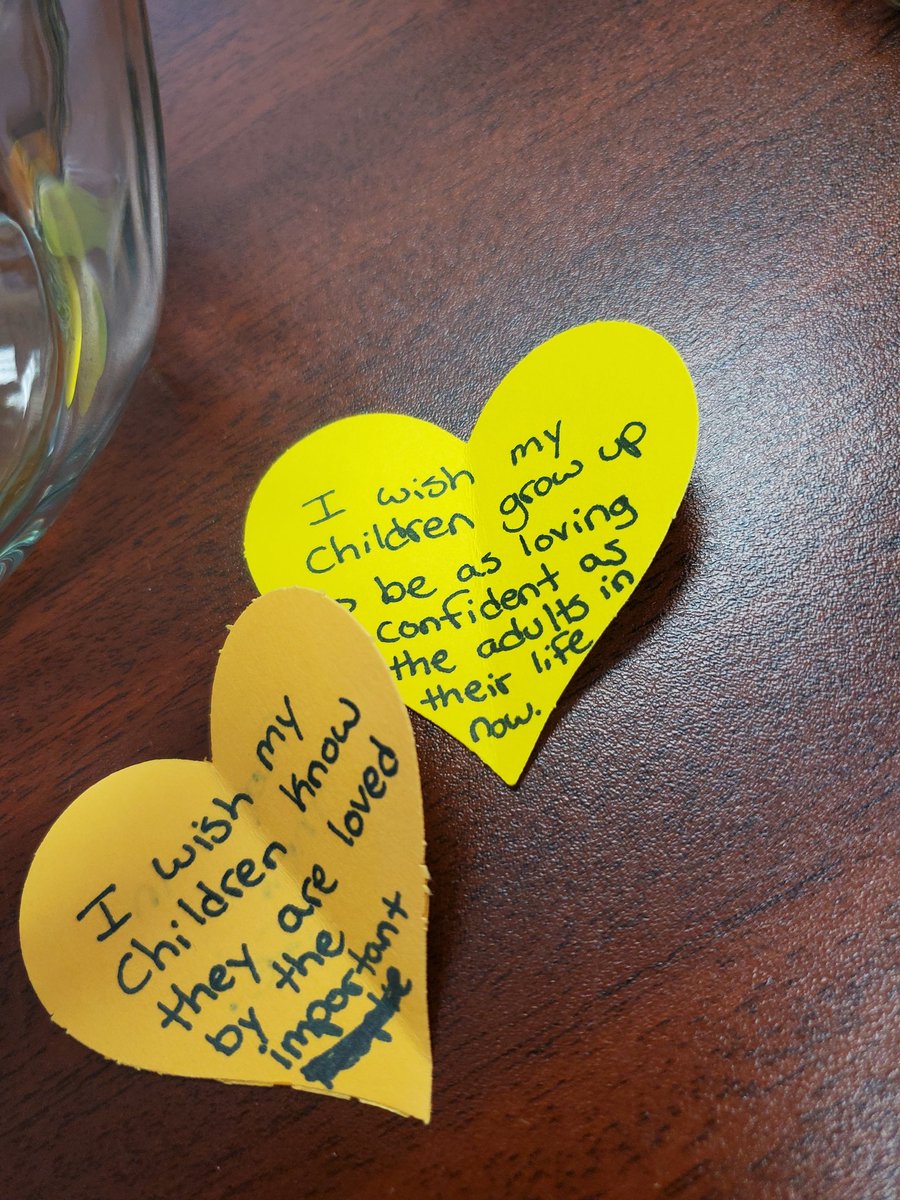 I wish my
children grow up
be as loving
confident as
the adults in
their life
now.
I wish my
Children know
they are loved
by the
important